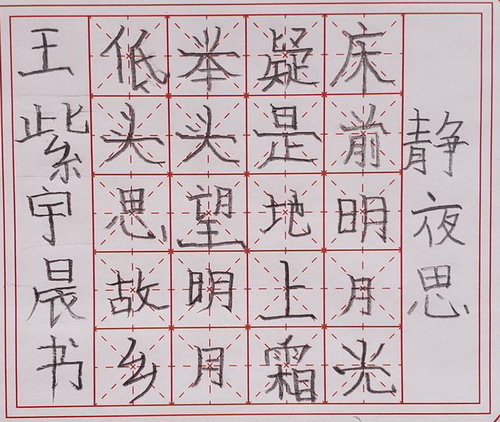 静夜思
床前明月光
疑是地上霜
举头望明月
低头思故乡
王紫宇晨书